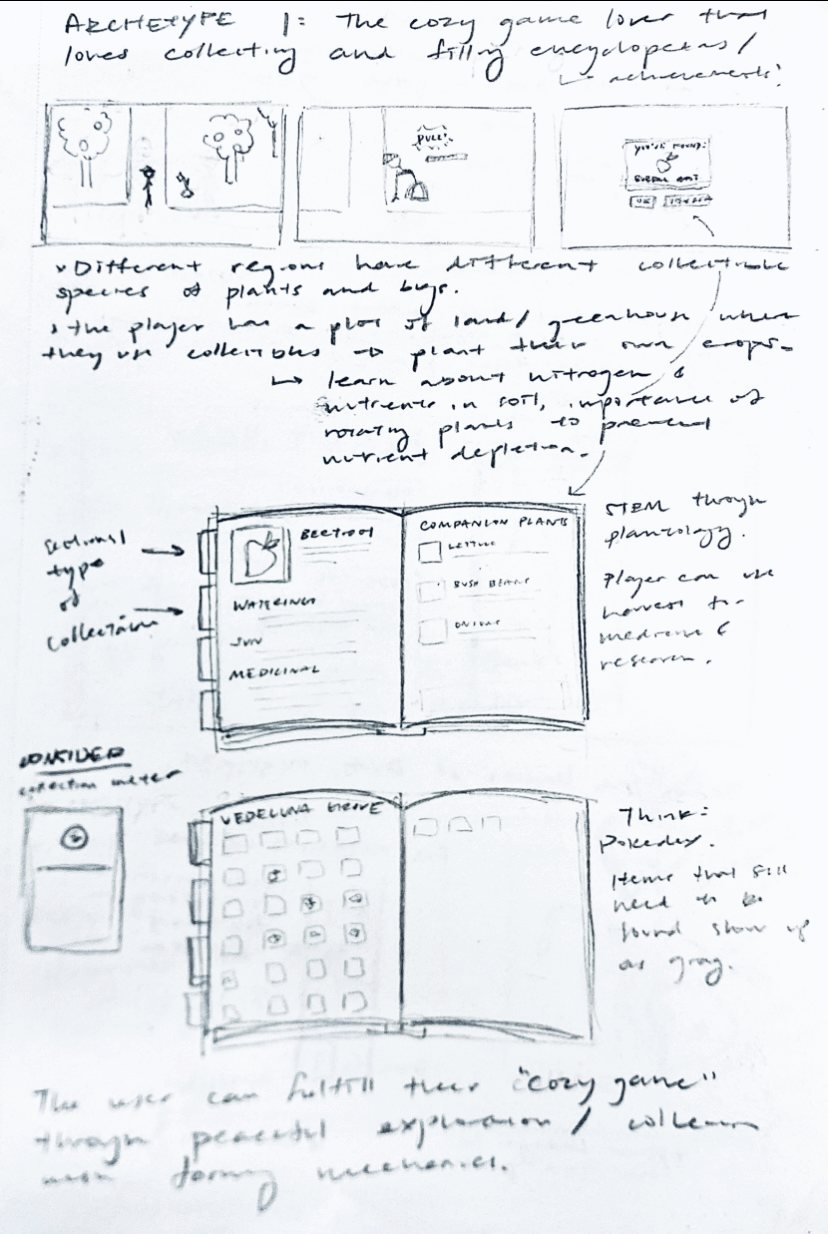 ARCHETYPE 1: The cozy game lover that
loves collecting and filling encyclopedias/
achievements!
PULL!
YOU'VE FOUND:
OK
• Different regions have different collectible
species of plants and bugs.
• the player has a plot of land/greenhouse where
they use collectibles → plant their own crops.
↳ learn about nitrogen &
nutrients in soil, importance of
rotating plants to prevent
nutrient depletion.
sectional
type
of
collection
BEETROOT
WATERING
SUN
MEDICINAL
COMPANION PLANTS
LETTUCE
BUSH BEANS
ONIONS
STEM through
plantology.
Player can use
harvest for
medicine &
research.
CONSIDER
collection meter
VEDELUNA GROVE
Think:
Pokedex.
Items that still
need to be
found show up
as gray.
The user can fulfill their "cozy game"
through peaceful exploration/collection
with farming mechanics.